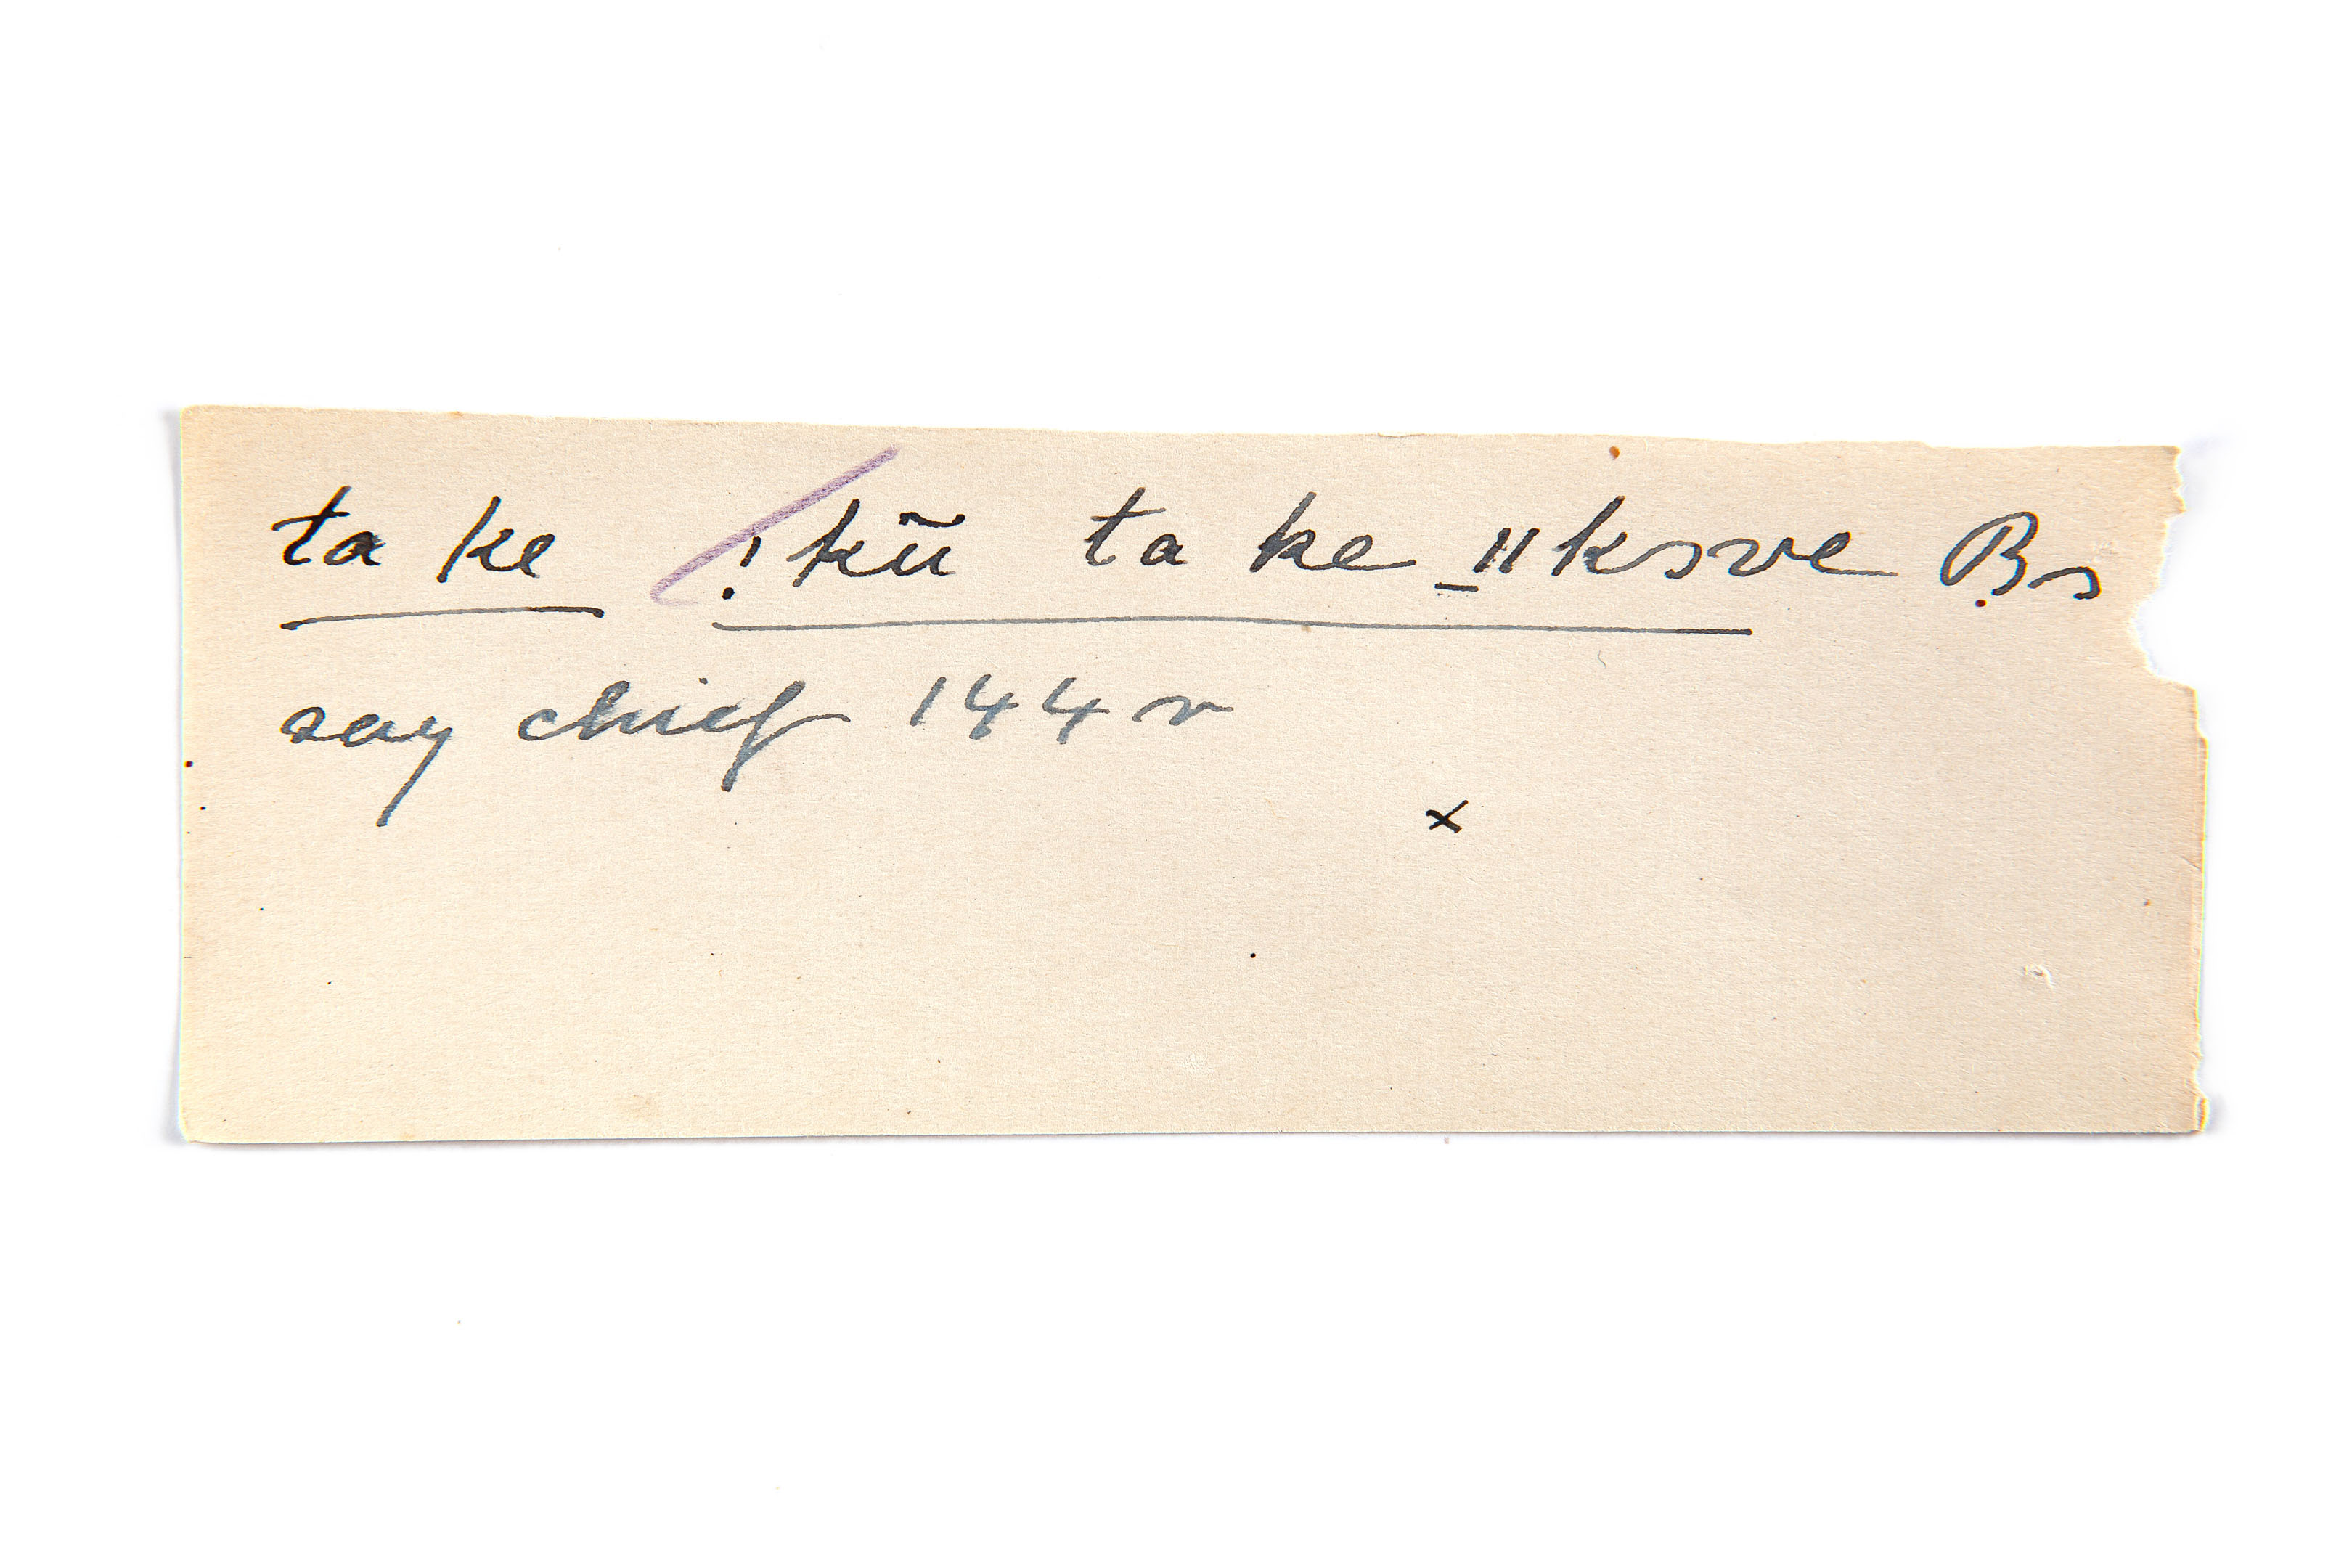 ta ke !kũ ta ke ǁksve Bs
say chief 144 r
x